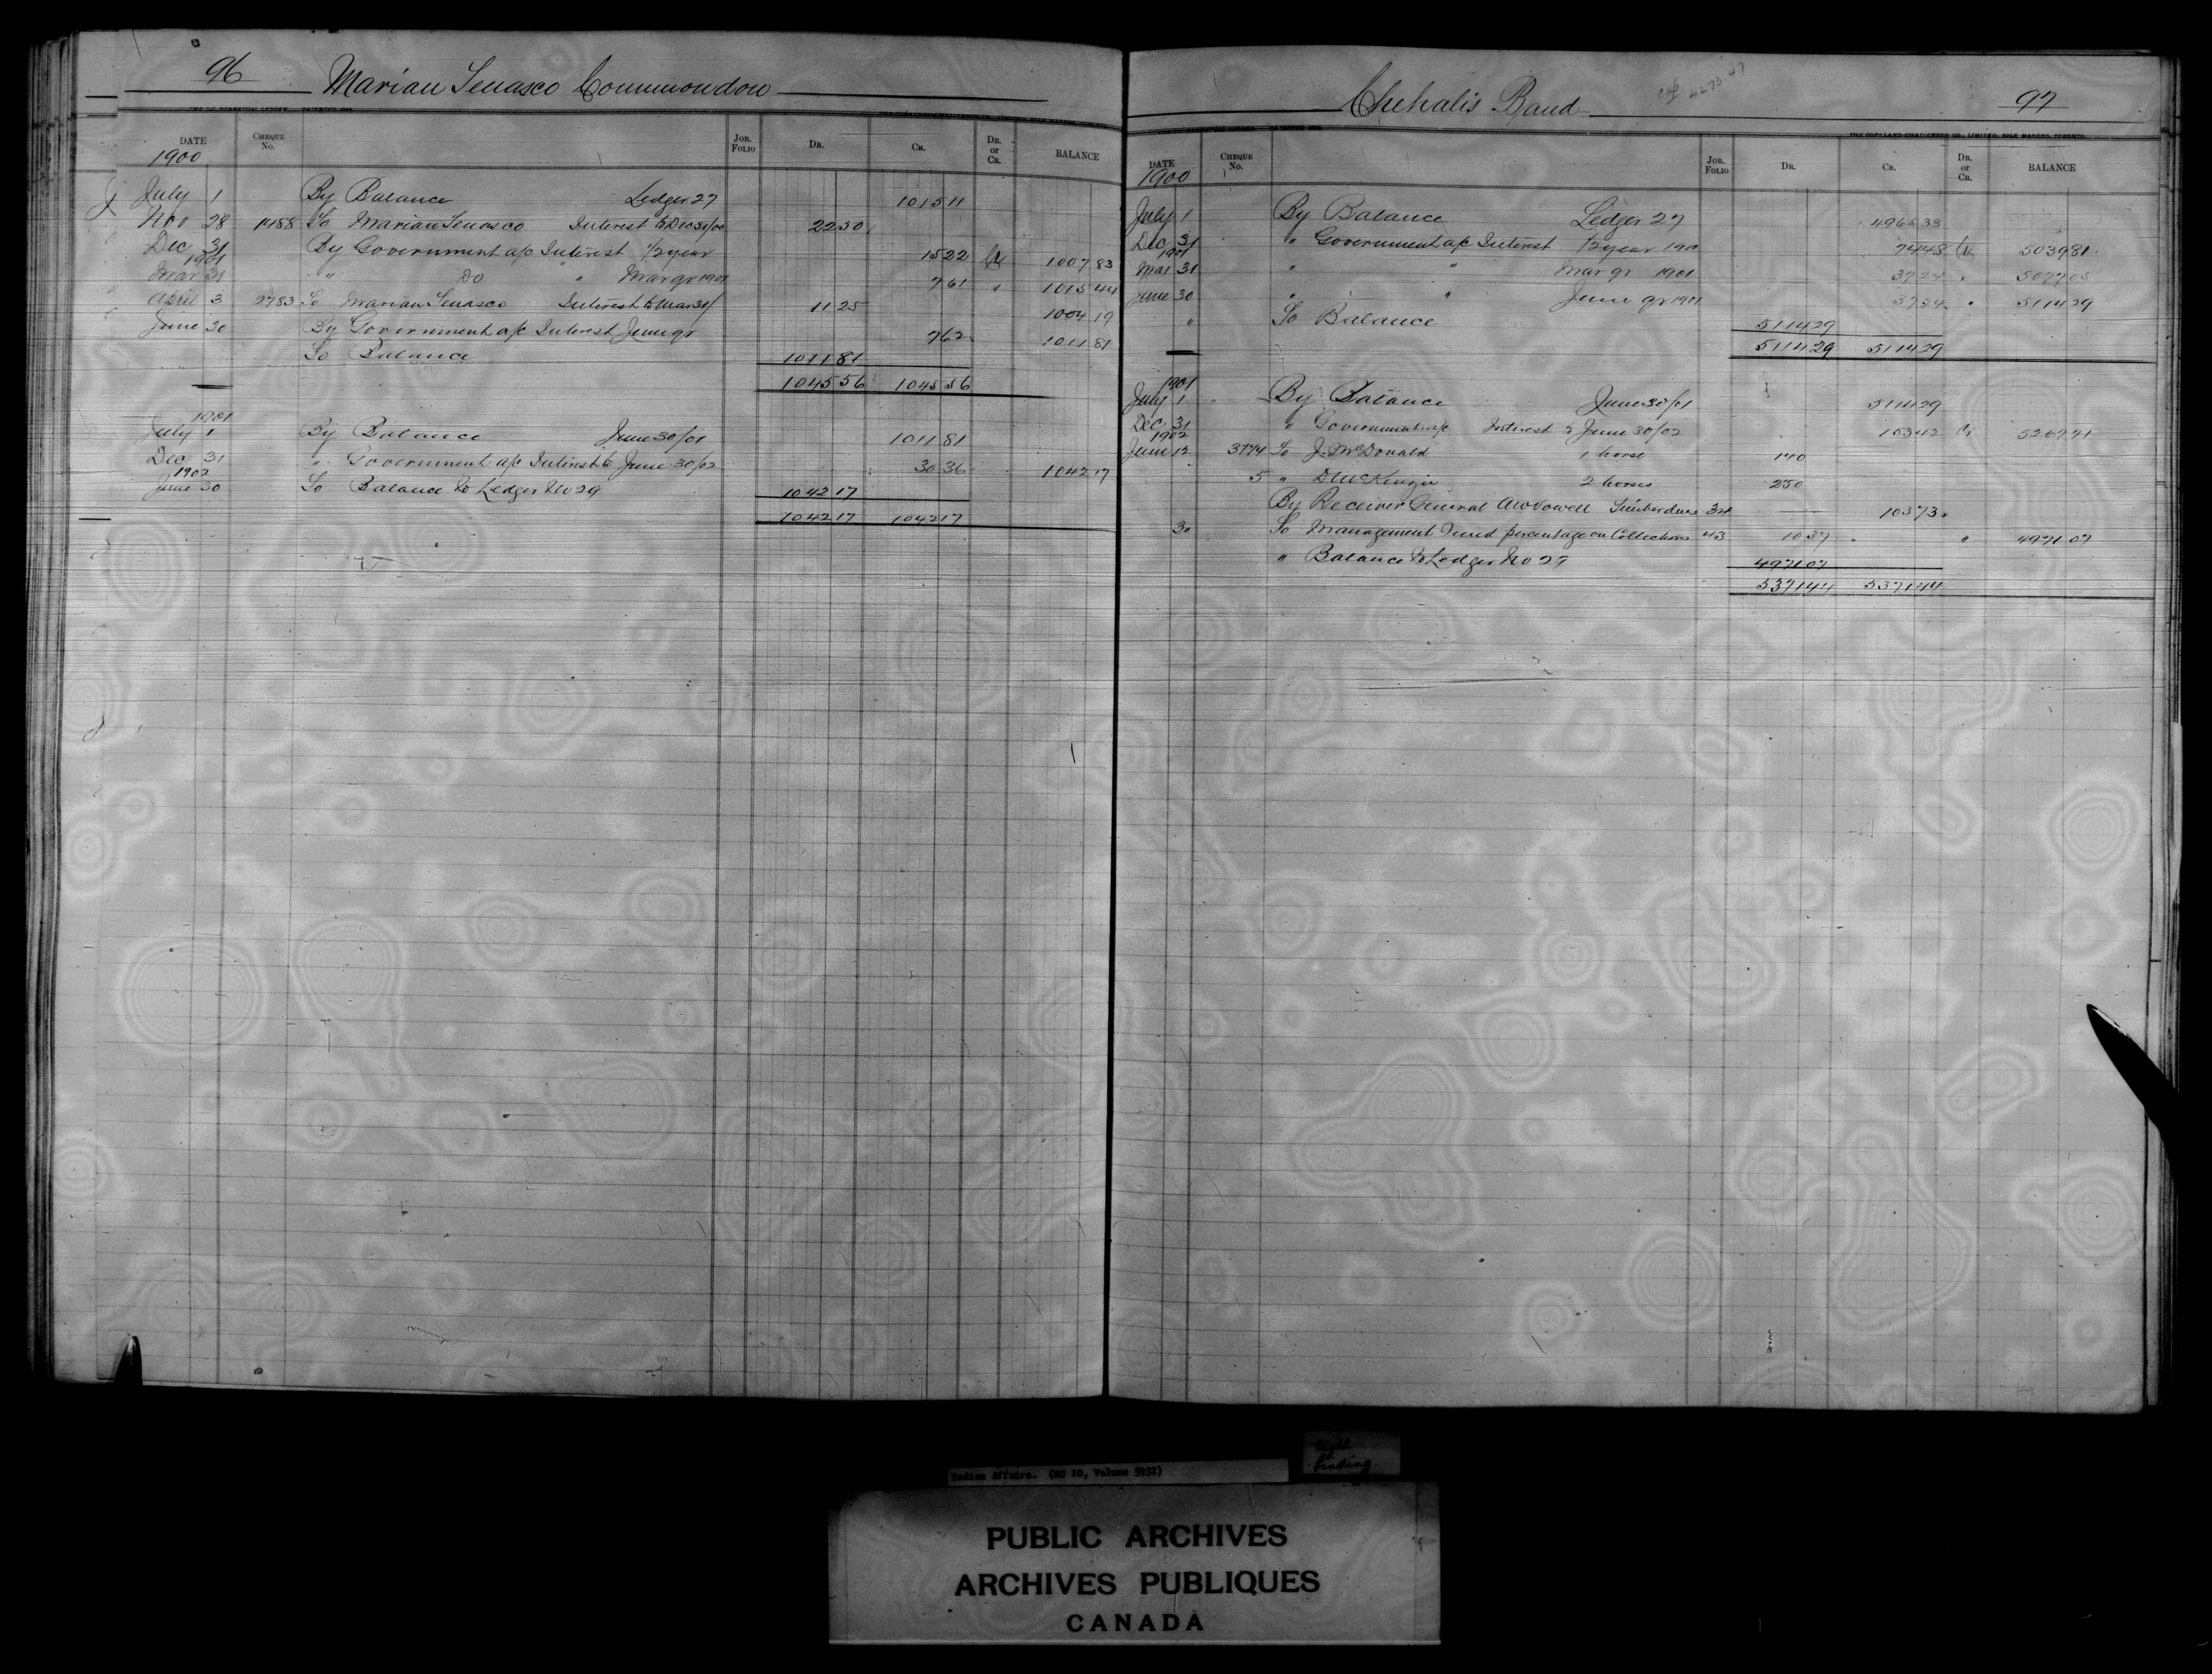 96 Marian Tenasco Commondow
DATE CHEQUE No. JOR. FOLIO DR. CR. DR. or CR. BALANCE
1900
July 1 By Balance Ledger 27 1015 11
Nov 28 1488 To Marian Tenasco Interest to Dec 31/00 22 50
Dec 31 By Government a/c Interest 1/2 year 15 22 Cr 1007 83
1901
Mar 31 " Do " Mar qr 1901 7 61 " 1015 44
April 3 2783 To Marian Tenasco Interest to Mar 31/ 11 25 1004 19
June 30 By Government a/c Interest June qr 7 62 1011 81
To Balance 1011 81
1045 56 1045 56
1901
July 1 By Balance June 30/01 1011 81
Dec 31 " Government a/c Interest to June 30/02 30 36 1042 17
1902
June 30 To Balance to Ledger No 29 1042 17
1042 17 1042 17
Chehalis Band 97
THE COPELAND-CHATTERSON CO., LIMITED, SOLE MAKERS, TORONTO
DATE CHEQUE No. JOR. FOLIO DR. CR. DR. or CR. BALANCE
1900
July 1 By Balance Ledger 27 4965 33
Dec 31 " Government a/c Interest 1/2 year 1900 74 48 Cr 5039 81
1901
Mar 31 " " Mar qr 1901 37 24 " 5077 05
June 30 " " June qr 1901 37 24 " 5114 29
" To Balance 5114 29
5114 29 5114 29
1901
July 1 By Balance June 30/01 5114 29
Dec 31 " Government a/c Interest to June 30/02 153 42 Cr 5267 71
1902
June 12 3774 To J. McDonald 1 horse 140
5 " D McKenzie 2 horses 250
By Receiver General Timber dues 103 73
30 To Management Fund percentage on Collections 43 10 37 " 4971 07
" Balance to Ledger No 29 4971 07
5371 44 5371 44
Indian Affairs. (RG 10, Volume 5932)
tight binding
PUBLIC ARCHIVES
ARCHIVES PUBLIQUES
CANADA